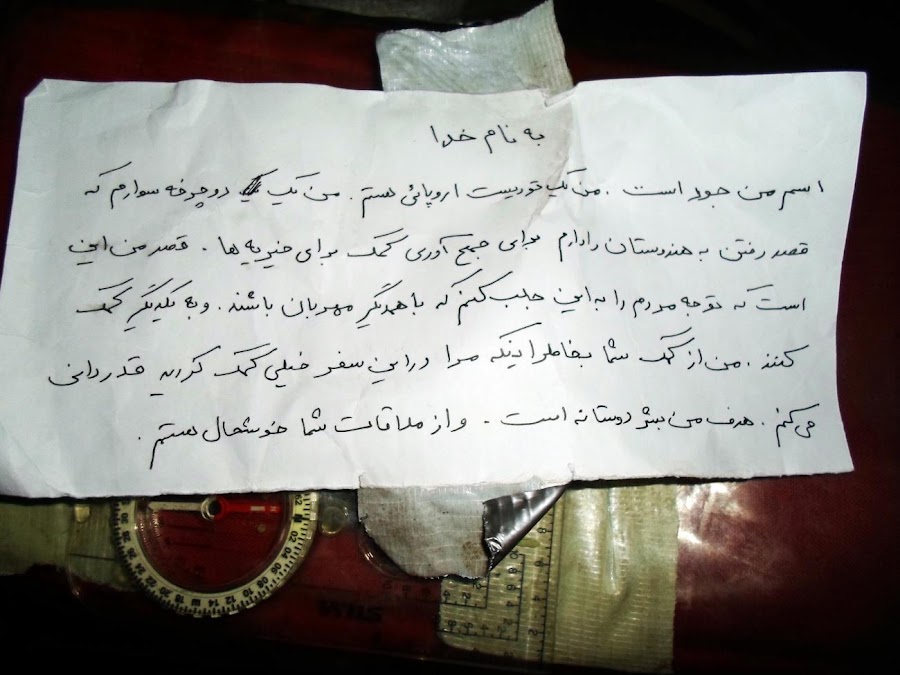 به نام خدا
اسم من جود است . من یک توریست اروپائی هستم . من یک دوچرخه سوارم که
قصد رفتن به هندوستان را دارم برای جمع آوری کمک برای خیریه ها . قصد من این
است که توجه مردم را به این جلب کنم که با همدیگر مهربان باشند . و به یکدیگر کمک
کنند . من از کمک شما بخاطر اینکه مرا در این سفر خیلی کمک کردید قدردانی
می کنم . هدف من بشر دوستانه است . و از ملاقات شما خوشحال هستم .
SILVA